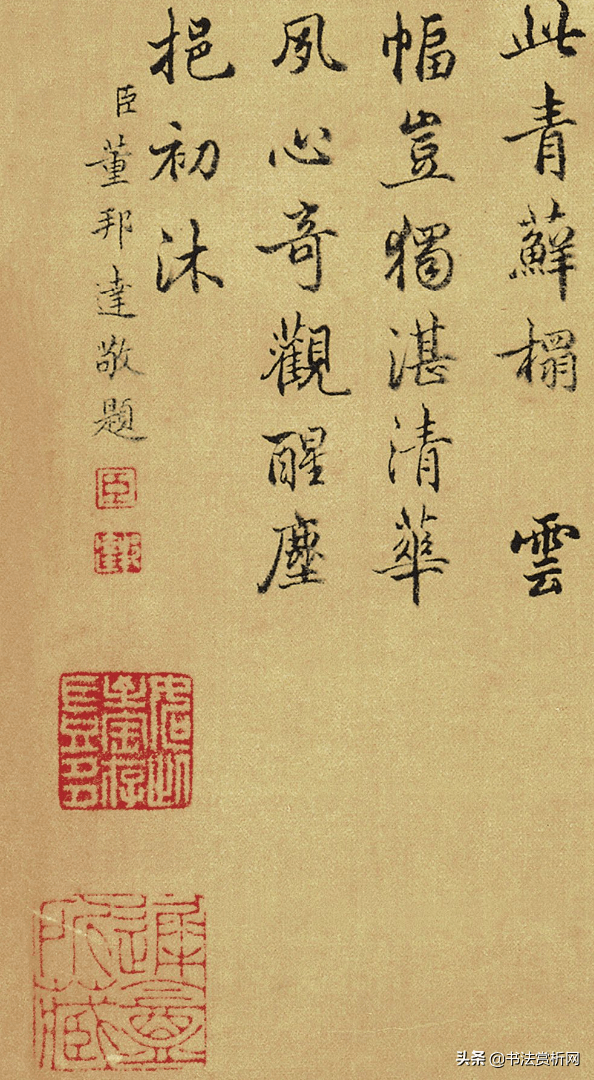 此青蘚榻 雲
幅豈獨湛清華
夙心奇觀醒塵
挹初沐
臣董邦達敬題
臣
头条 @书法赏析网